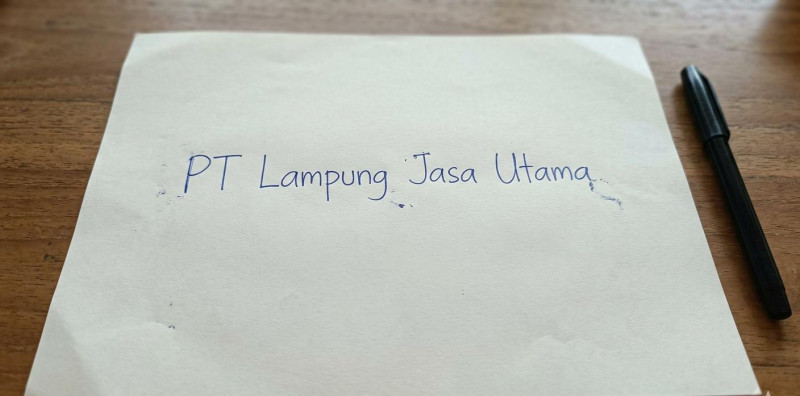 PT Lampung Jasa Utama